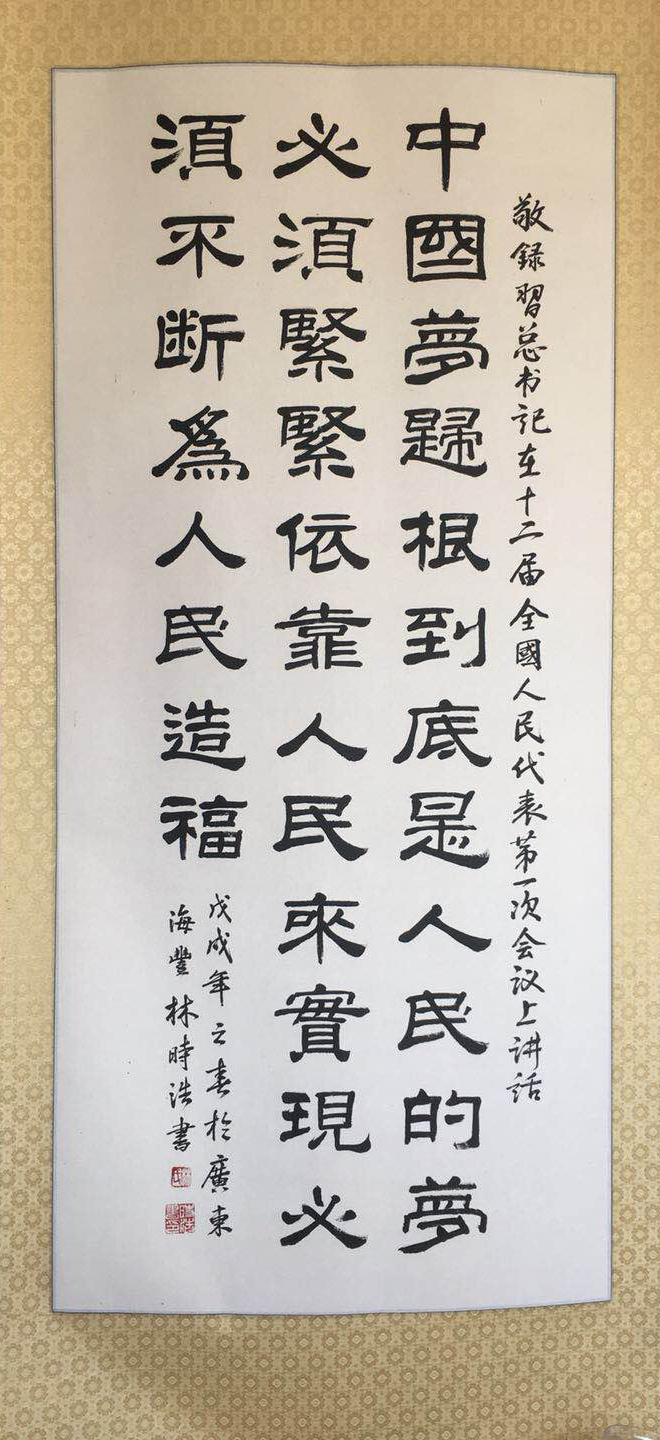 敬録習总书記在十二届全國人民代表第一次会议上讲話
中國夢歸根到底是人民的夢
必須緊緊依靠人民來實現必
須不断為人民造福
戊戌年之春於廣東
海豐林時浩書